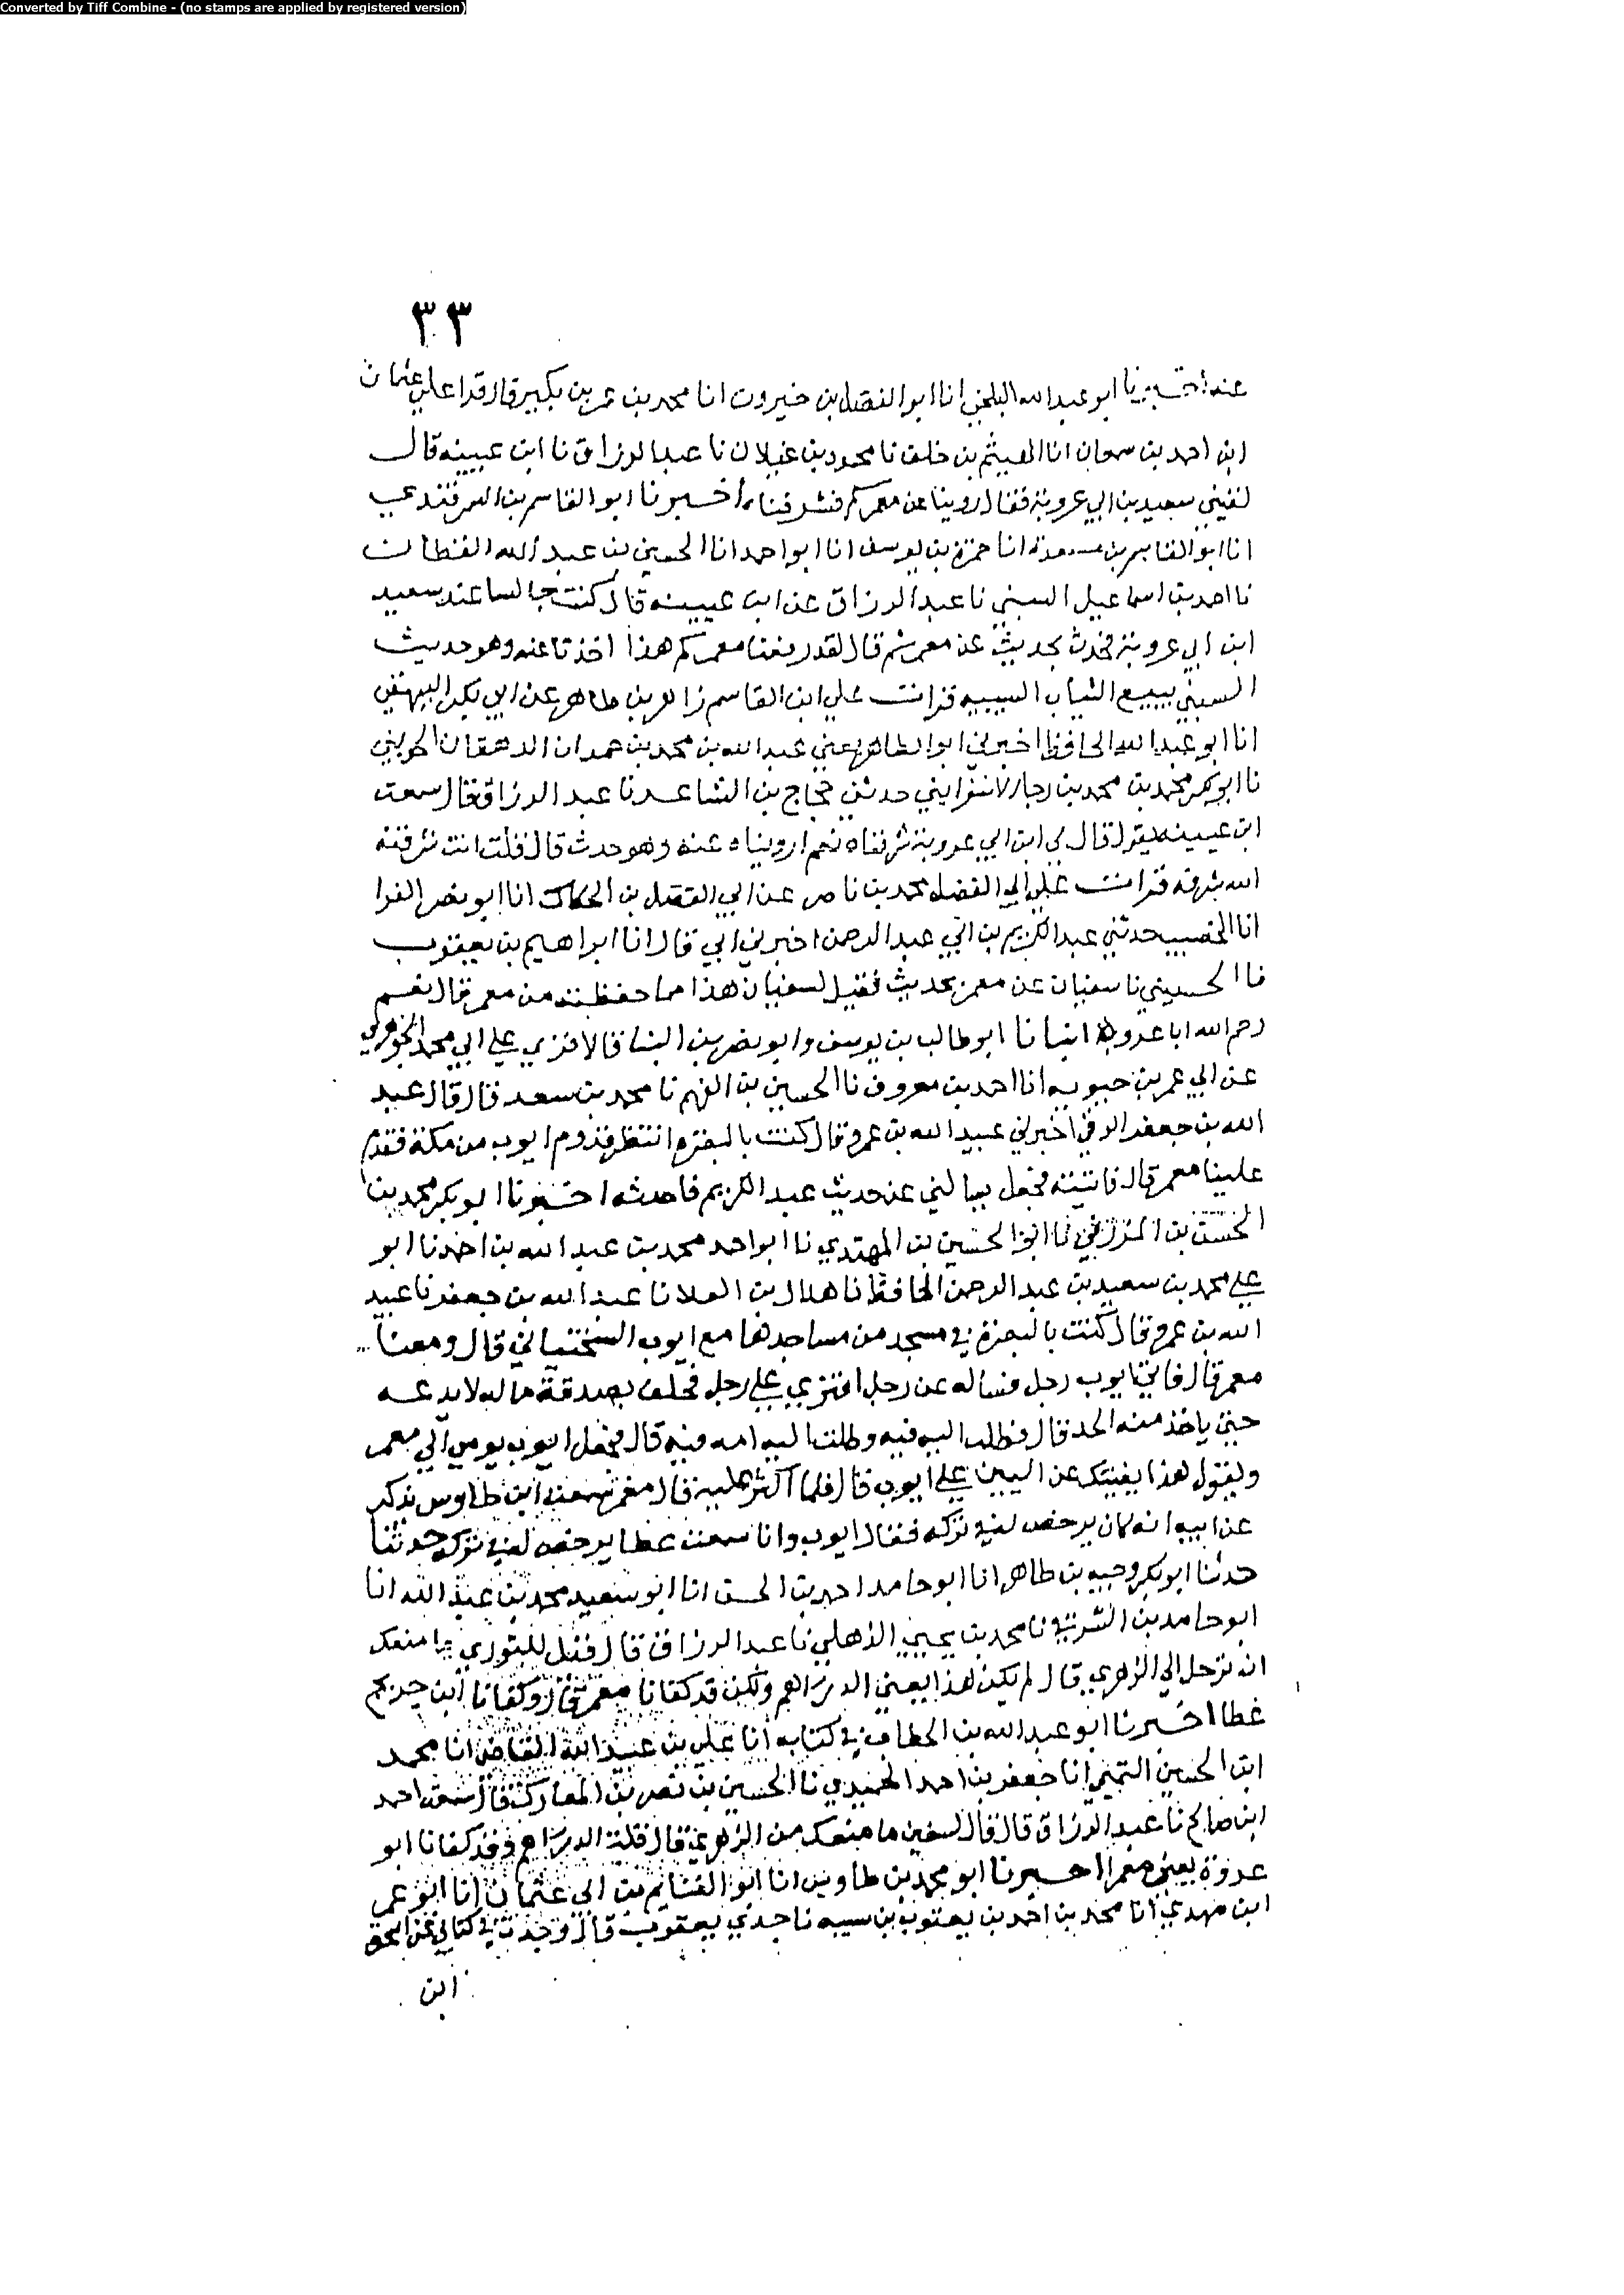 Converted by Tiff Combine - (no stamps are applied by registered version)
٣٣
عنه اخبرنا ابو عبد الله البلخي انا ابو الفضل بن خيرون انا محمد بن عمر بن بكير قال قرا علي عثمان
ابن احمد بن سمعان انا الهيثم بن خلف نا محمود بن غيلان نا عبد الرزاق نا ابن عيينه قال
لقيني سعيد بن ابي عروبة فقال روينا عن معمركم فشرفناه اخبرنا ابو القاسم بن السمرقندي
انا ابو القاسم بن مسعدة انا حمزة بن يوسف انا ابو احمد انا الحسين بن عبد الله القطان
نا احمد بن اسماعيل السبني نا عبد الرزاق عن ابن عيينه قال كنت جالسا عند سعيد
ابن ابي عروبة فحدث بحديث عن معمر ثم قال لقد رفعنا معمركم هذا اخذنا عنه وهو حديث
السبني يبيع الثياب السبيبه قرات علي ابن القاسم زاهر بن طاهر عن ابي بكر البيهقي
انا ابو عبد الله الحافظ اخبرني ابو الطاهر يعني عبد الله بن محمد بن حمدان الدهقان الجويني
نا ابو بكر محمد بن محمد بن رجا الاسفرايني حدثني حجاج بن الشاعر نا عبد الرزاق قال سمعت
ابن عيينه يقول قال لي ابن ابي عروبة شرفناه نعم ارويناه عنه وهو حدث قال قلت انت شرفته
الله شرفه قرات علي ابي الفضل محمد بن ناصر عن ابي الفضل بن الحكاك انا ابو نصر الفرا
انا الخصيب حدثني عبد الكريم بن ابي عبد الرحمن اخبرني ابي قال انا ابراهيم بن يعقوب
نا الحسيني نا سفيان عن معمر بحديث فقيل لسفيان هذا مما حفظت من معمر قال نعم
رحم الله ابا عروة انبانا ابو طالب بن يوسف وابو نصر بن البنا قالا قري علي ابي محمد الجوهري
عن ابي عمر بن حيويه انا احمد بن معروف نا الحسين بن الفهم نا محمد بن سعد قال قال عبد
الله بن جعفر الرقي اخبرني عبيد الله بن عمرو قال كنت بالبصره انتظر قدوم ايوب من مكة فقدم
علينا معمر قال فاتيته فجعل يسالني عن حديث عبد الكريم فاحدثه اخبرنا ابو بكر محمد بن
الحسين بن المزرفي نا ابو الحسين بن المهتدي نا ابو احمد محمد بن عبد الله بن احمد نا ابو
علي محمد بن سعيد بن عبد الرحمن الحافظ نا هلال بن العلا نا عبد الله بن جعفر نا عبيد
الله بن عمرو قال كنت بالبصرة في مسجد من مساجدها مع ايوب السختياني قال ومعنا
معمر قال فاتي ايوب رجل فساله عن رجل افتري علي رجل فحلف بصدقة ماله لا يدعه
حتي ياخذ منه الحد قال فطلب اليه فيه وطلبت اليه امه فيه قال فجعل ايوب يومي الي معمر
ويقول هذا يفتيك عن اليمين علي ايوب قال فلما اكثر عليه قال معمر سمعت ابن طاوس يذكر
عن ابيه انه كان يرخص لفي تركه فقال ايوب وانا سمعت عطا يرخص لفي تركه حدثنا
حدثنا ابو بكر وجيه بن طاهر انا ابو حامد احمد بن الحسن انا ابو سعيد محمد بن عبد الله انا
ابو حامد بن الشرقي نا محمد بن يحيي الذهلي نا عبد الرزاق قال قيل للثوري ما منعك
ان ترحل الي الزهري قال لم يكن هذا يعني الدراهم ولكن قد كفانا معمر قال وكفانا ابن جريج
عطا اخبرنا ابو عبد الله بن الخطاب في كتابه انا علي بن عبيد الله القاضي انا محمد
ابن الحسين التميمي انا جعفر بن احمد الحميدي نا الحسين بن نصر بن المعارك قال سمعت احمد
ابن صالح نا عبد الرزاق قال قال لسفين ما منعك من الزهري قال قلة الدراهم وقد كفانا ابو
عروة يعني معمرا اخبرنا ابو محمد بن طاوس انا ابو الغنايم بن ابي عثمان انا ابو عمر
ابن مهدي انا محمد بن احمد بن يعقوب بن سيبه نا جدي يعقوب قال وجدت في كتابي عن اسحق
ابن